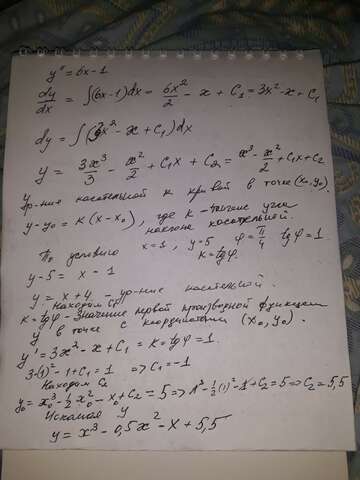 y'' = 6x-1
dy/dx = ∫(6x-1)dx = 6x²/2 - x + C₁ = 3x²-x+C₁
dy = ∫(3x² - x + C₁)dx
y = 3x³/3 - x²/2 + C₁x + C₂ = x³ - x²/2 + C₁x + C₂
Ур-ние касательной к кривой в точке (x₀, y₀).
y-y₀ = k(x-x₀), где k - тангенс угла
наклона касательной.
По условию x=1, y=5 φ=π/4 tgφ=1
k=tgφ.
y-5 = x-1
y = x+4 - ур-ние касательной.
Находим C₁
k=tgφ - значение первой производной функции
y в точке с координатами (x₀, y₀).
y' = 3x² - x + C₁ = k = tgφ = 1.
3·(1)² - 1 + C₁ = 1 => C₁ = -1
Находим C₂
y₀ = x₀³ - 1/2 x₀² - x₀ + C₂ = 5 => 1³ - 1/2(1)² - 1 + C₂ = 5 => C₂ = 5,5
Искомая y
y = x³ - 0,5x² - x + 5,5